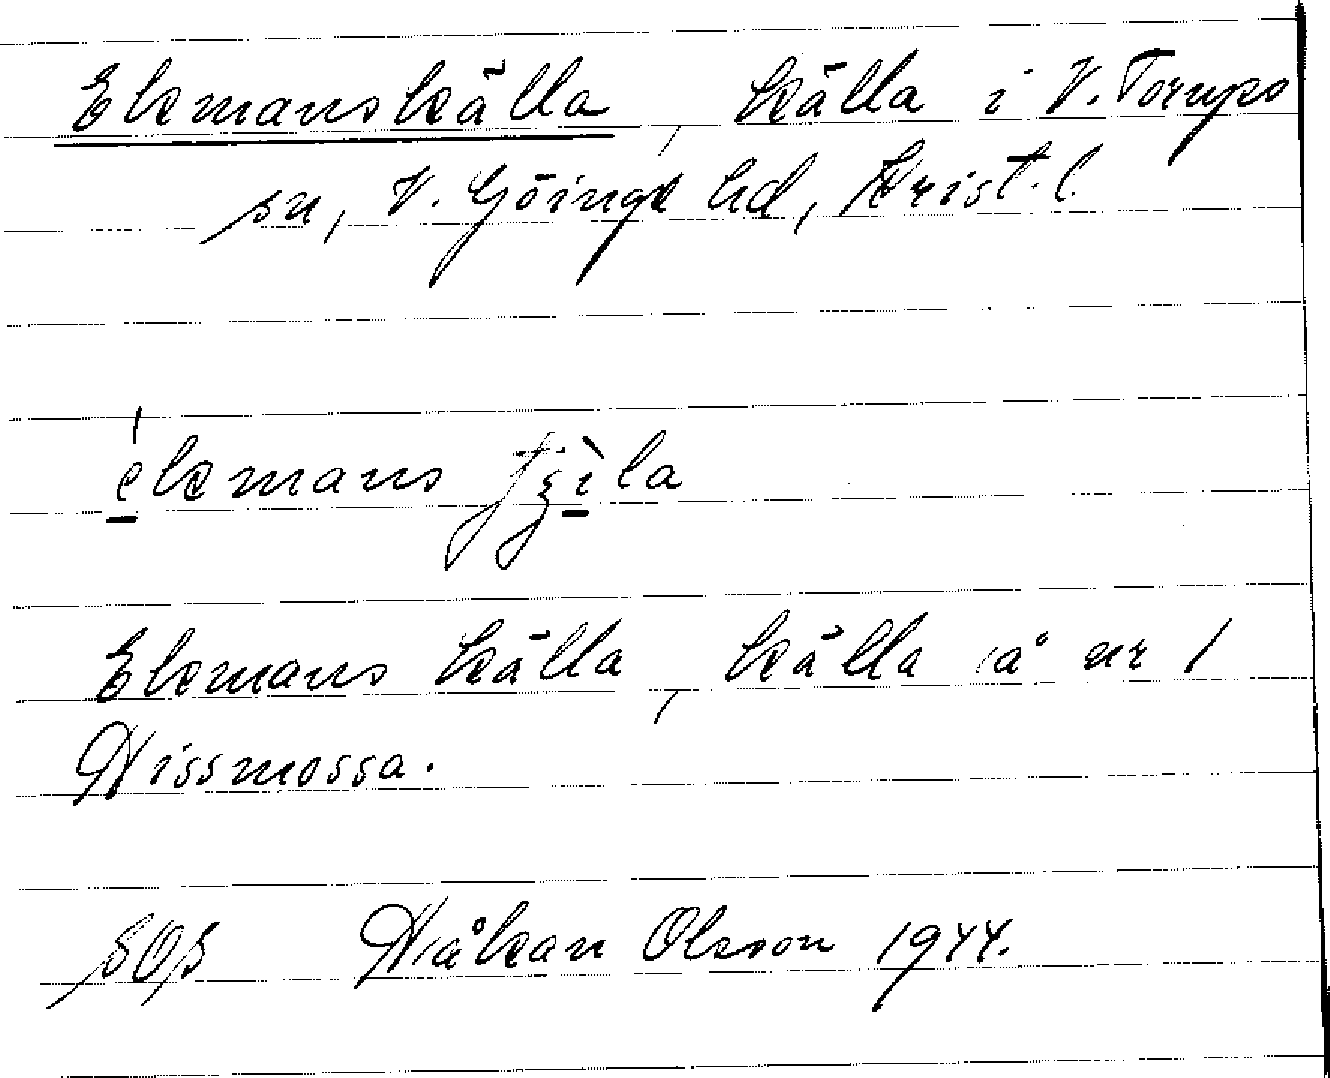 Ekmanskälla, källa i V. Torups
sn, V. Göinge hd, Krist. l.
ekmans
Ekmans källa, källa å nr 1
Hissmossa.
SOS Håkan Olsson 1944.